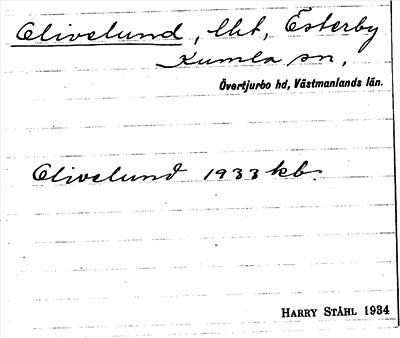 Olivelund, lht, Österby
Kumla sn,
Övertjurbo hd, Västmanlands län.
Olivelund 1933 kb.
HARRY STÅHL 1934